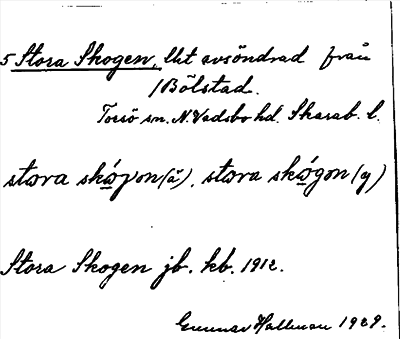 5 Stora Skogen, lht avsöndrad från
1 Bölstad.
Torsö sn. N. Vadsbo hd. Skarab. l.
stɷra skɷ́γon (ä), stɷra skɷ́gon (y)
Stora Skogen jb. kb. 1912.
Gunnar Hallman 1929.